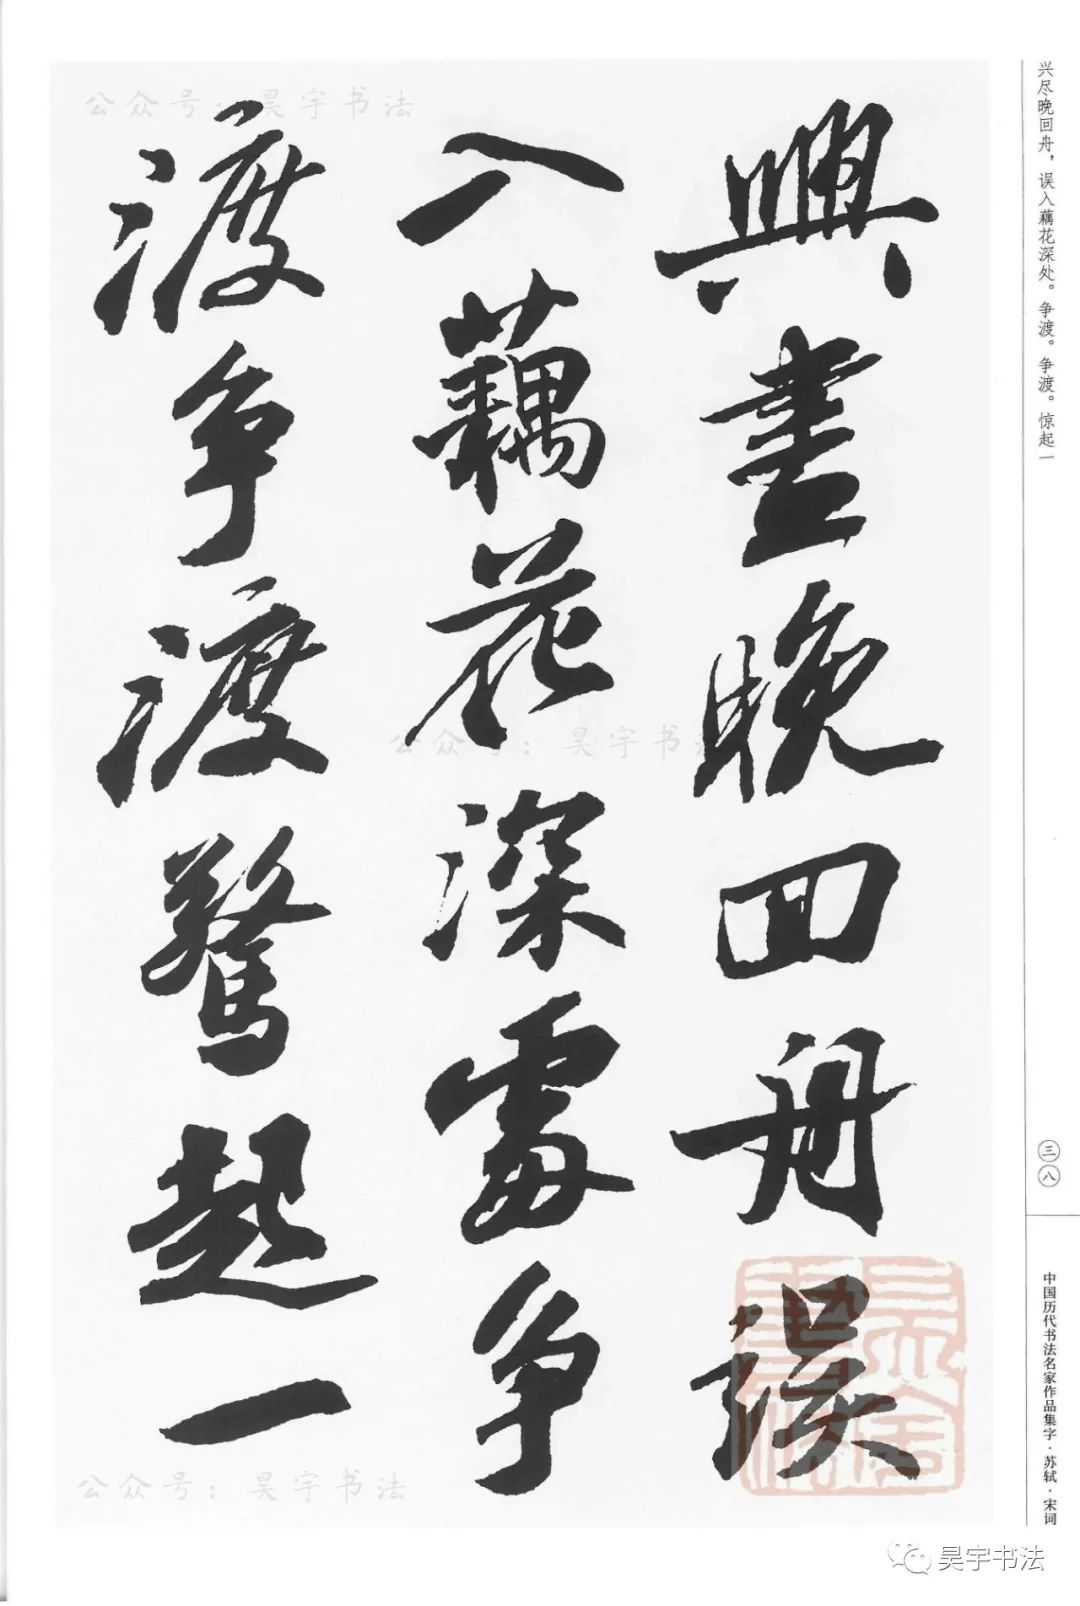 興盡晚回舟誤
入藕花深處爭
渡爭渡驚起一
兴尽晚回舟，误入藕花深处。争渡。争渡。惊起一
三八
中国历代书法名家作品集字·苏轼·宋词
公众号：昊宇书法
公众号：昊宇书法
公众号：昊宇书法
昊宇书法